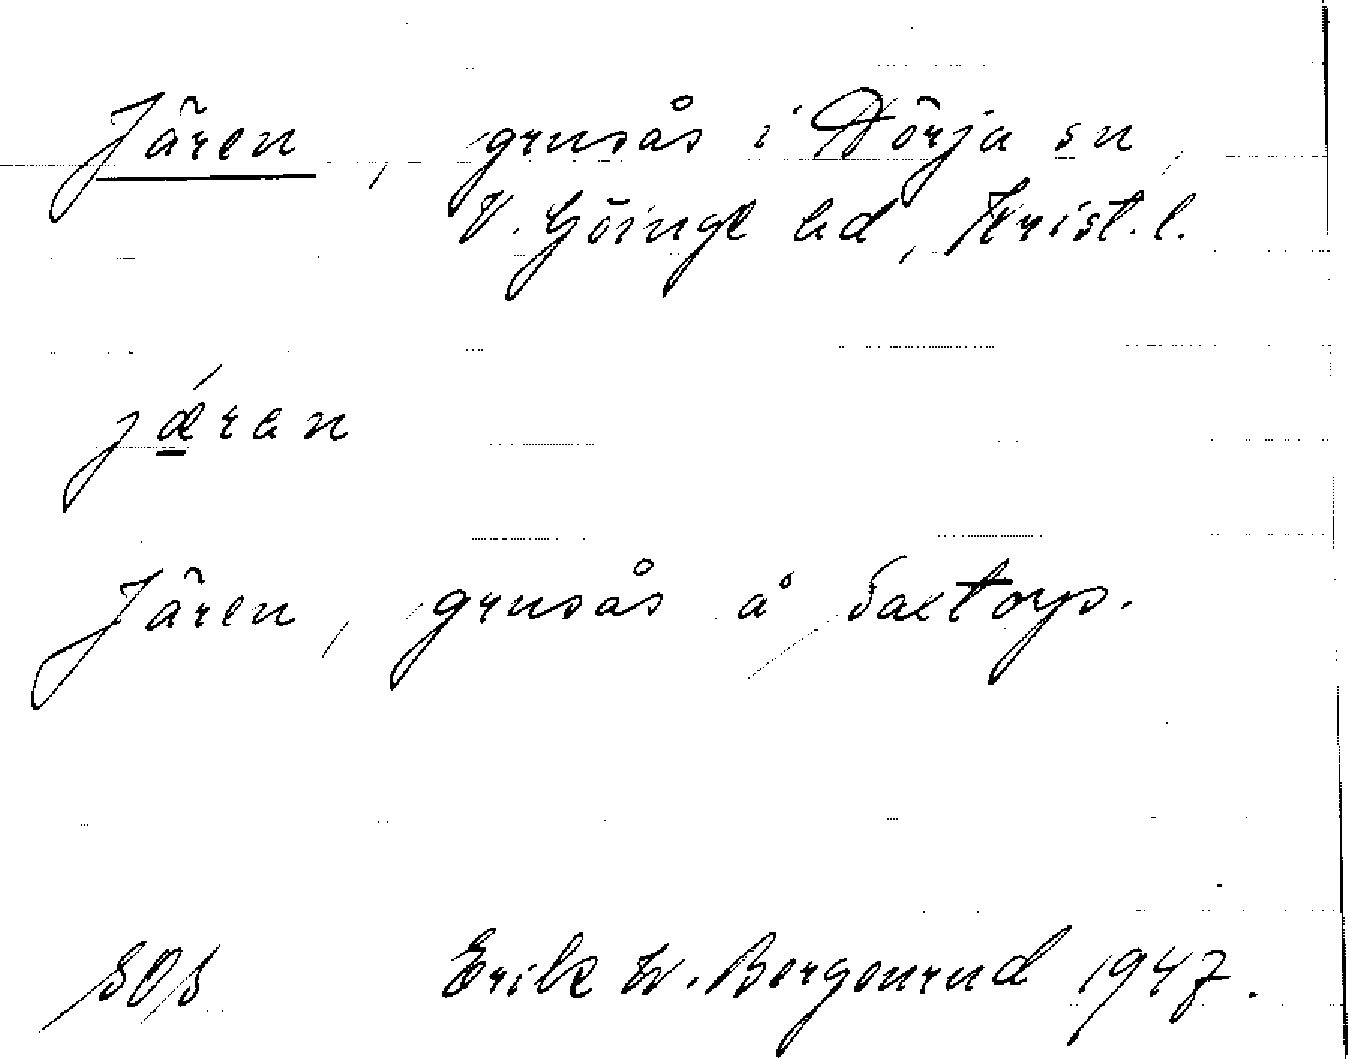 Jären, grusås i Dörja sn,
V. Göinge hd, Krist. l.
jǽran
Jären, grusås å Saxtorp.
SOS Erik W. Bergenrud 1947.